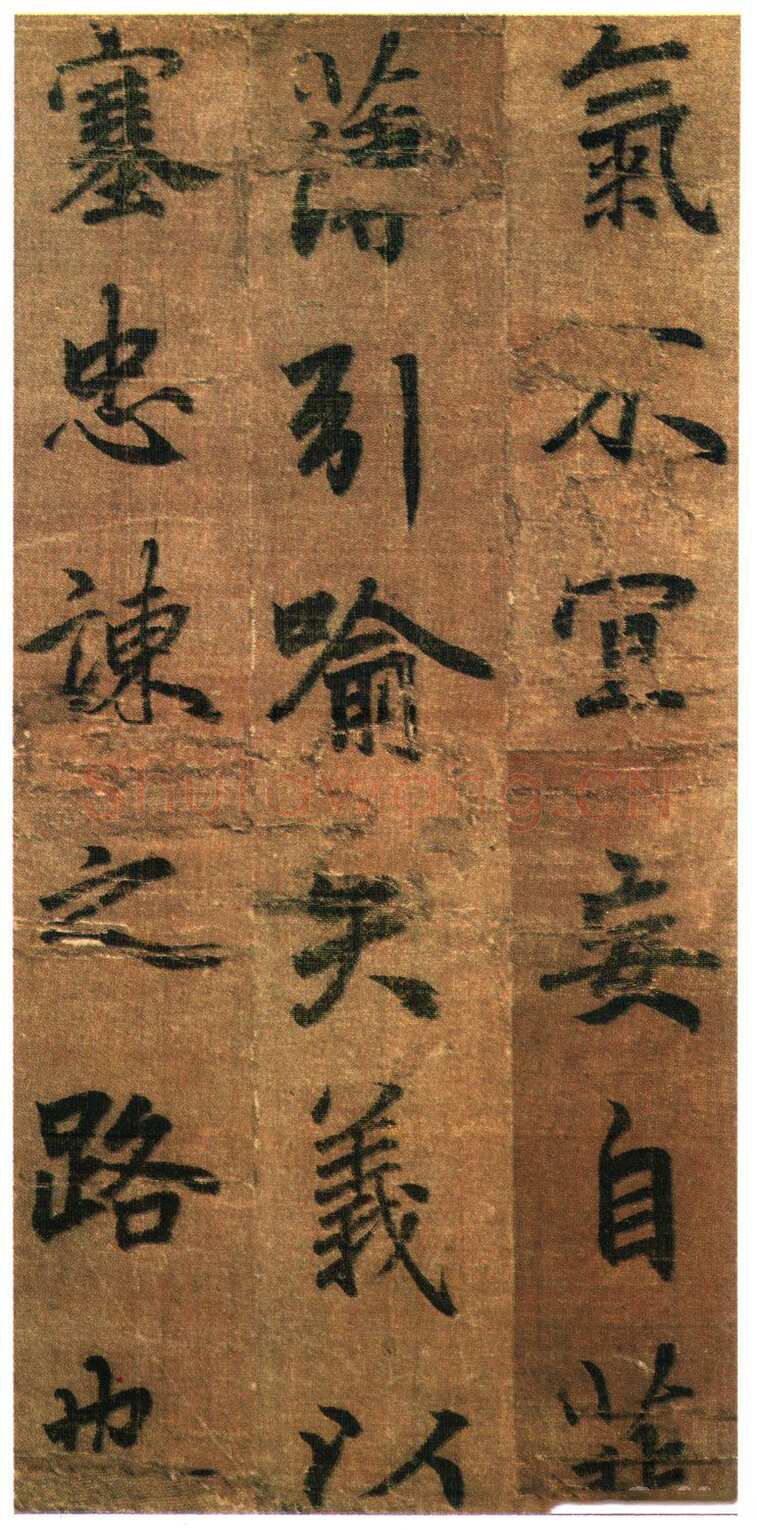 氣不宜妄自菲
薄引喻失義以
塞忠諫之路也
shufawang.CN